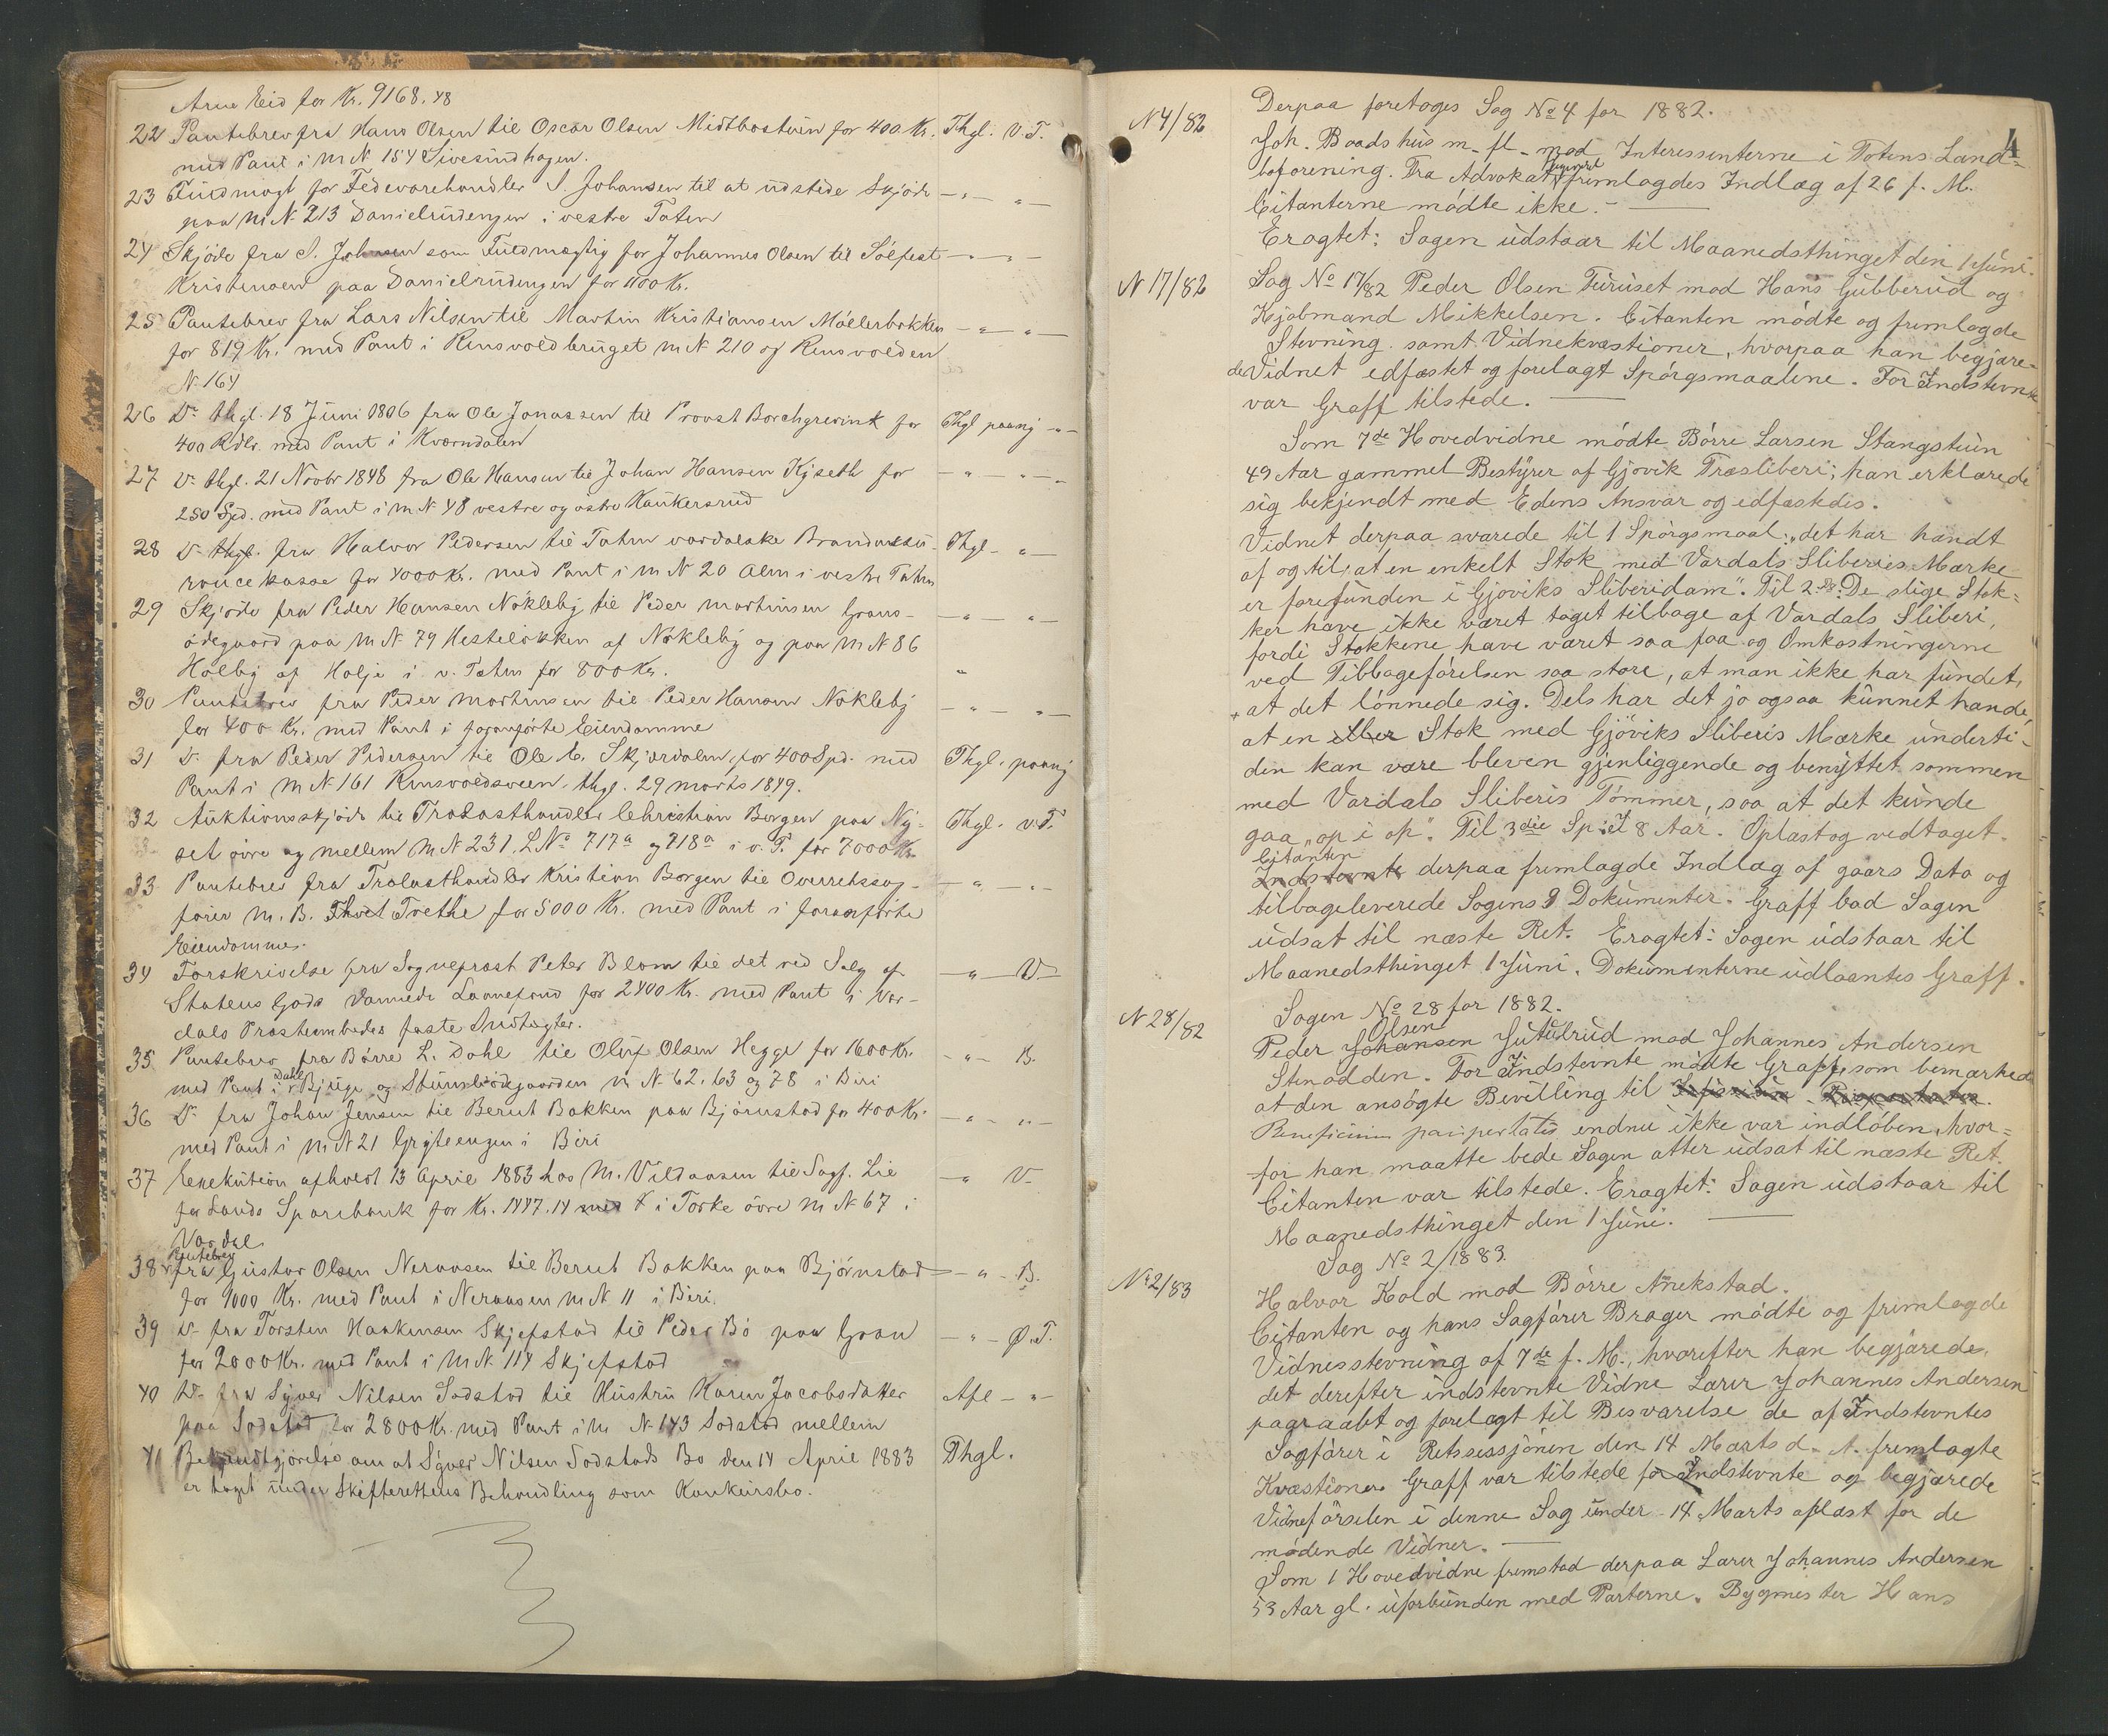 Arne Eid for Kr. 9168.48
22 Pantebrev fra Hans Olsen til Oscar Olsen Midtbostuen for 400 Kr. Thgl. V.T.
med Pant i M N 154 Sivesindhagen.
23 Fuldmagt for Fedevarehandler S. Johansen til at udstede Skjöde — " — " —
paa M N 213 Danielrudengen i vestre Toten
24 Skjöde fra S. Johansen som Fuldmægtig for Johannes Olsen til Sölfest — " — " —
Kristensen paa Danielrudengen for 1100 Kr.
25 Pantebrev fra Lars Nilsen til Martin Kristiansen Möllerbakken — " — " —
for 819 Kr. med Pant i Rensvoldbruget M N 210 og Rensvolden
N. 164
26 Do thgl. 18 Juni 1806 fra Ole Jonassen til Provst Borchgrevink for Thgl paany — " —
400 Rdlr. med Pant i Kværndalen
27 Do thgl. 21 Novbr 1848 fra Ole Hansen til Johan Hansen Kyseth for — " — " —
250 Spd. med Pant i M N 48 vestre og östre Kankerud
28 Do thgl. fra Halvor Pedersen til Toten vardalske Brandassu- Thgl — " —
rancekasse for 4000 Kr. med Pant i M N 20 Alm i vestre Toten
29 Skjöde fra Peder Hansen Nökleby til Peder Martinsen Grans- — " — " —
ödegaard paa M N 79 Hestelökken af Nökleby og paa M N 86
Holby af Holje i v. Toten for 800 Kr. "
30 Pantebrev fra Peder Martinsen til Peder Hansen Nökleby — " — " —
for 400 Kr. med Pant i foranförte Eiendomme
31 Do fra Peder Pedersen til Ole E. Skjærdalen, for 400 Spd. med Thgl. paany
Pant i M N 161 Rensvoldsveen. thgl. 29 marts 1849.
32 Auktionsskjöde til Trælasthandler Christian Borgen paa Ny- Thgl. v.T.
set övre og mellem M N 231. L No 717a og 718a i v. T. for 7000 Kr.
33 Pantebrev fra Trælasthandler Kristian Borgen til Overretssag- — " — " —
förer M. B. Thvet Tvethe for 5000 Kr. med Pant i foranförte
Eiendomme.
34 Forskrivelse fra Sogneprest Peter Blom til det ved Salg af — " — V —
Statens Gods dannede Laanefond for 2400 Kr. med Pant i Var-
dals Presteembedes faste Indtægter.
35 Pantebrev fra Börre L. Dahl til Oluf Olsen Hegge for 1600 Kr. — " — B.
med Pant i Dahl Bjuge og Stumlieödegaarden M N. 62. 63 og 78 i Biri
36 Do fra Johan Jensen til Berut Bakken paa Björnstad for 400 Kr. — " — " —
med Pant i M N 21 Gryteengen i Biri
37 Exekution afholdt 13 April 1883 hos M. Vildaasen til Sagf. Lie — " V —
for Lands Sparebank for Kr. 1447.14 med i Torke övre M N 67 i
Vardal
Pantebrev
38 fra Gustav Olsen Neraasen til Berut Bakken paa Björnstad — " — B.
for 1000 Kr. med Pant i Neraasen M N 11 i Biri.
39 Do fra Torsten Haakensen Skjefstad til Peder Bö paa Gran — " — Ø.T.
for 2000 Kr. med Pant i M N 114 Skjefstad
40 Do fra Syver Nilsen Sodstad til Hustru Karen Jacobsdatter Afl — " —
paa Sodstad for 2800 Kr. med Pant i M N 143 Sodstad mellem
41 Bekjendtgjörelse om at Syver Nilsen Sodstads Bo den 14 April 1883 Thgl.
er taget under Skifterettens Behandling som Konkursbo.
4
N 4/82 Derpaa foretoges Sag No 4 for 1882.
Joh. Baadshus m. fl. mod Interessenterne i Totens Land-
boforening. Fra Advokat fremlagdes Indlæg af 26 f. M.
Citanterne mödte ikke. —
Eragtet: Sagen udstaar til Maanedsthinget den 1 Juni.
N 17/82 Sag No 17/82 Peder Olsen Furuset mod Hans Gubberud og
Kjöbmand Mikkelsen. Citanten mödte og fremlagde
Stevning samt Vidnekvæstioner, hvorpaa han begjære-
de Vidnet edfæstet og forelagt Spörgsmaalene. For Indstevnte
var Graff tilstede. —
Som 7de Hovedvidne mödte Börre Larsen Stangstuen
49 Aar gammel Bestyrer af Gjövik Træsliberi; han erklærede
sig bekjendt med Edens Ansvar og edfæstedes.
Vidnet derpaa svarede til 1 Spörgsmaal: "det har hændt
af og til, at en enkelt Stok med Vardals Sliberies Mærke
er forefunden i Gjöviks Sliberidam". Til 2 Sp: De slige Stok-
ker have ikke været taget tilbage af Vardals Sliberi,
fordi Stokkene have været saa faa og Omkostningerne
ved Tilbageförelsen saa store, at man ikke har fundet,
at det lönnede sig. Dels har det jo ogsaa kunnet hænde,
at en eller Stok med Gjöviks Sliberis Mærke underti-
den kan være bleven gjenliggende og benyttet sammen
med Vardals Sliberis Tömmer, saa at det kunde
gaa "op i op". Til 3die Sp: I 8 Aar. Oplæst og vedtaget.
Citanten
Indstevnte derpaa fremlagde Indlæg af gaars Dato og
tilbageleverede Sagens 9 Dokumenter. Graff bad Sagen
udsat til næste Ret. Eragtet: Sagen udstaar til
Maanedsthinget 1 Juni. Dokumenterne udlaantes Graff.
N 28/82 Sagen No 28 for 1882.
Olsen
Peder Johansen Jutulrud mod Johannes Andersen
Stenodden. For Indstevnte mödte Graff, som bemærkede
at den ansögte Bevilling til
Beneficium paupertatis endnu ikke var indlöben, hvor-
for han maatte bede Sagen atter udsat til næste Ret.
Citanten var tilstede. Eragtet: Sagen udstaar til
Maanedsthinget den 1 Juni. —
N 2/83 Sag No 2/1883.
Halvor Kold mod Börre Anekstad.
Citanten og hans Sagförer Brager mödte og fremlagde
Vidnesstevning af 7de f. M., hvorefter han begjærede,
det derefter indstevnte Vidne Lærer Johannes Andersen
paaraabt og forelagt til Besvarelse de af Indstevntes
Sagförer i Retssessionen den 14 Marts d. A. fremlagte
Kvæstioner. Graff var tilstede for Indstevnte og begjærede
Vidneförselen i denne Sag under 14 Marts oplæst for de
mödende Vidner. —
Som 1 Hovedvidne fremstod derpaa Lærer Johannes Andersen
53 Aar gl. uforbunden med Parterne. Bygmester Hans